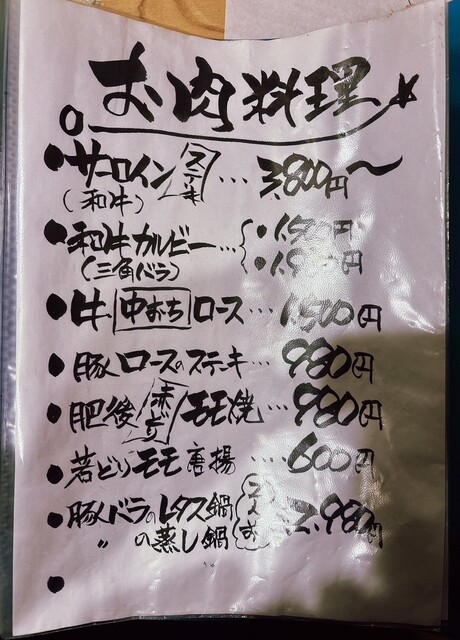 お肉料理
●サーロインステーキ…3,800円〜
(和牛)
●和牛カルビー…●1,500円
(三角バラ) ●1,900円
●牛中おちロース…1,500円
●豚ロースのステーキ…980円
●肥後赤鶏モモ焼…980円
●若どりモモ唐揚…600円
●豚バラのレタス鍋
〃の蒸し鍋 2,980円
●